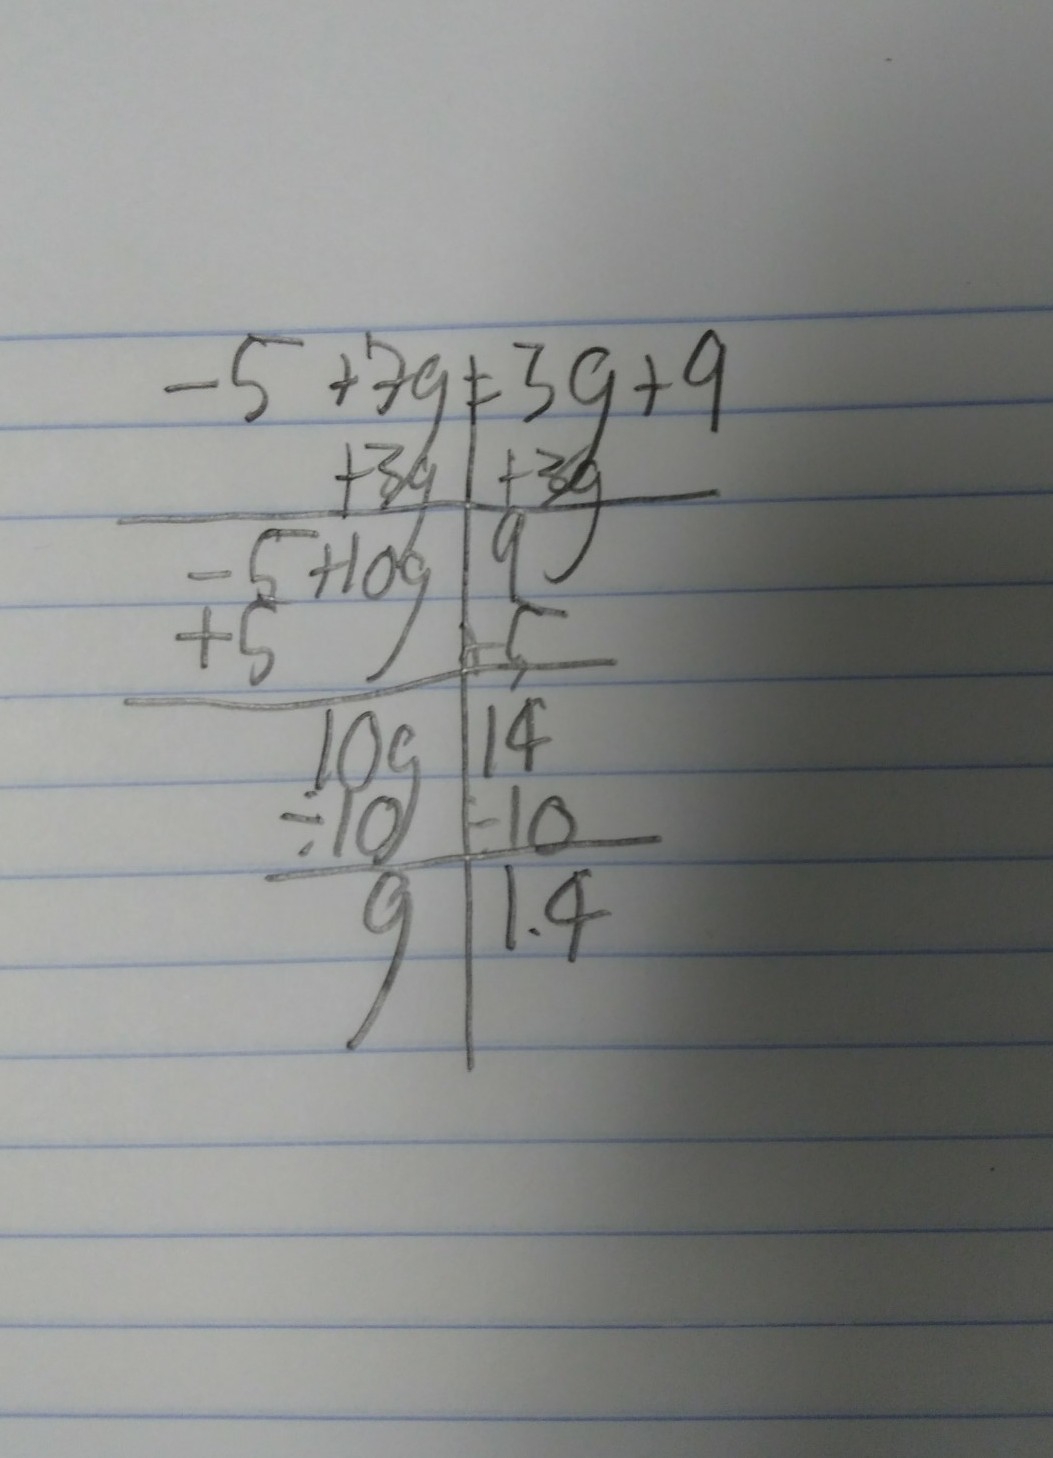 -5 +7g = 3g + 9
+3g +3g
-5 +10g 9
+5 +5
10g 14
÷10 ÷10
g 1.4